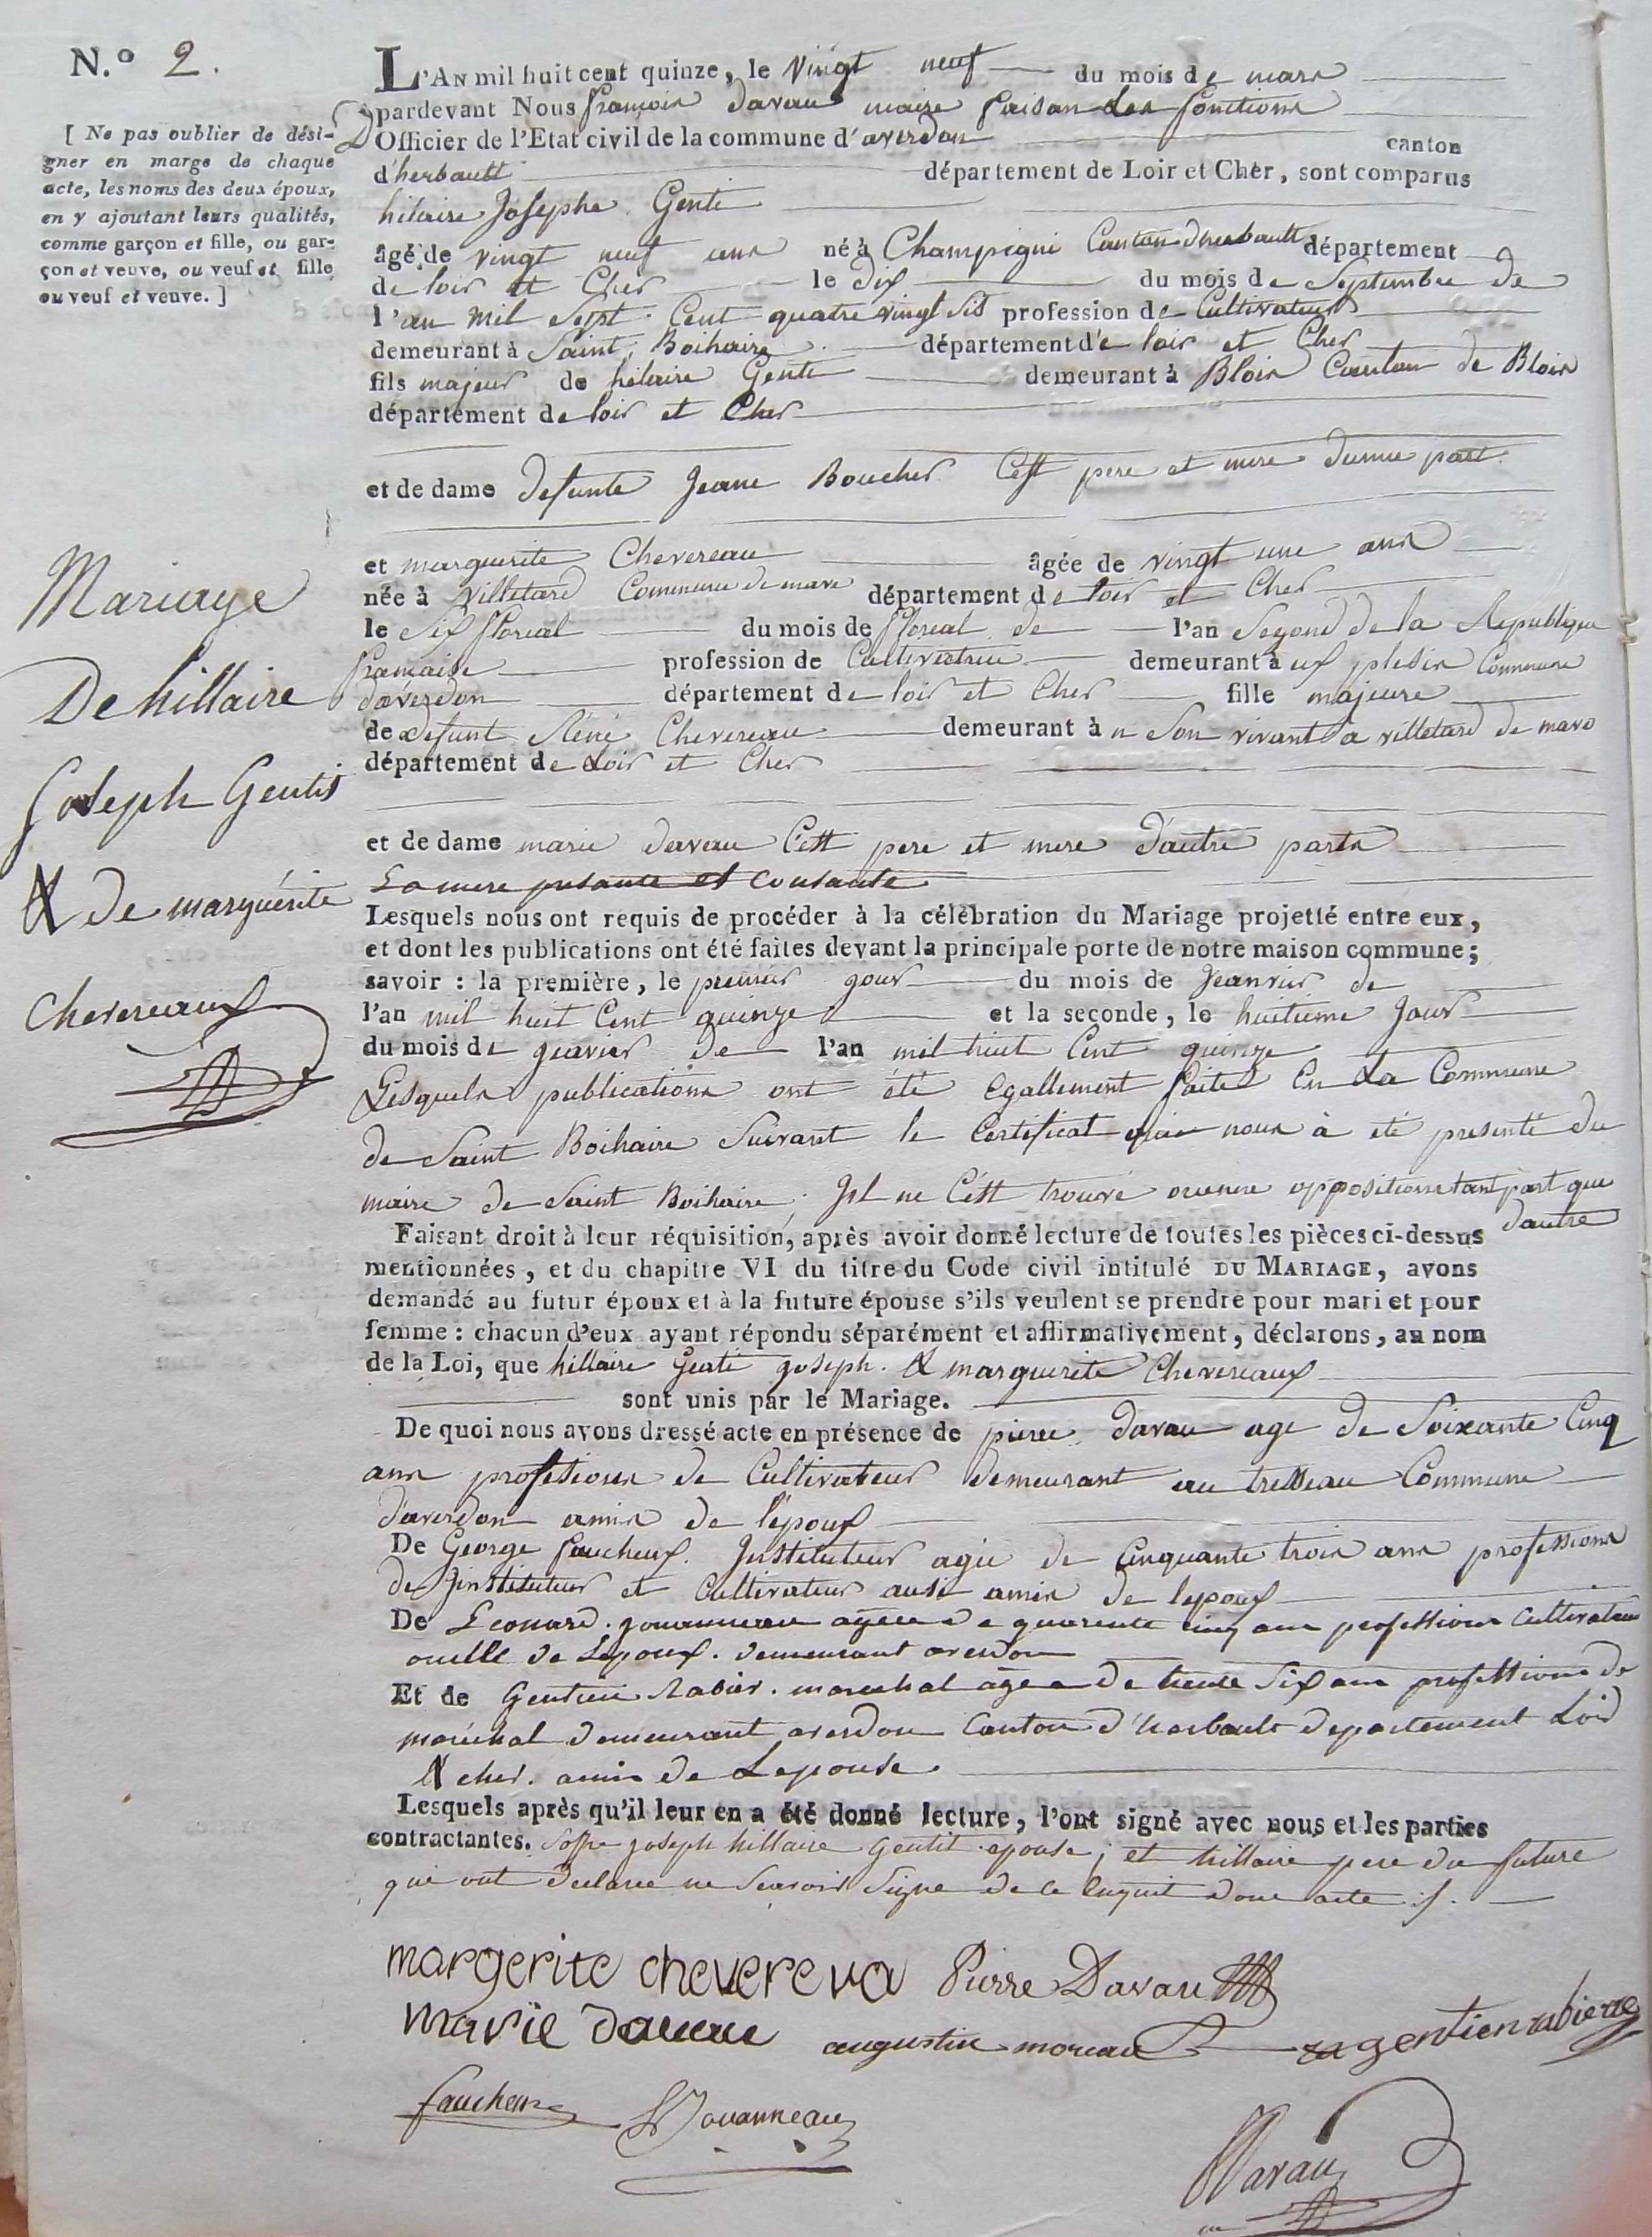 N.º 2.
[ Ne pas oublier de dési-
gner en marge de chaque
acte, les noms des deux époux,
en y ajoutant leurs qualités,
comme garçon et fille, ou gar-
çon et veuve, ou veuf et fille
ou veuf et veuve. ]
Mariage
De hillaire
Joseph Gentis
& de marguérite
Chevereaux
L'AN mil huit cent quinze, le Vingt neuf du mois de mars
pardevant Nous françois davau maire faisan les fonctions
D Officier de l'Etat civil de la commune d'averdon canton
d'herbault département de Loir et Cher, sont comparus
hilaire Josephe Genti
âgé de vingt neuf ans né à Champigni Canton dherbault département
de loir et Cher le dix du mois de Septembre de
l'an mil Sept Cent quatre vingt Sis profession de Cultivateur
demeurant à Saint Boihaire département de loir et Cher
fils majeur de hilaire Genti demeurant à Blois Canton de Blois
département de loir et Cher
et de dame defunte Jeane Boucher Cest pere et mere dunne part
et marguerite Chevereau âgée de vingt une ans
née à villetard Commune de mave département de loir et Cher
le Six floreal du mois de floreal de l'an Segond de la Republique
francaise profession de Cultivatrice demeurant à eux plesis Commune
daverdon département de loir et Cher fille majeure
de defunt Réné Chevereau demeurant à n Son vivant a villetard de mave
département de Loir et Cher
et de dame marie davau Cett pere et mere d'autre parts
La mere presante et consante
Lesquels nous ont requis de procéder à la célébration du Mariage projetté entre eux,
et dont les publications ont été faites devant la principale porte de notre maison commune;
savoir : la première, le premier gour du mois de Jeanvier de
l'an mil huit Cent quinze et la seconde, le huitieme Jour
du mois de genvier de l'an mil huit Cent quinze
Lesquels publications ont été Egallement faites En La Commune
de Saint Boihaire Suivant le Certificat qui nous à eté presenté du
maire de Saint Boihaire, Jsl ne Cett trouvé oucune oppositions tant part que
dautre
Faisant droit à leur réquisition, après avoir donné lecture de toutes les pièces ci-dessus
mentionnées, et du chapitre VI du titre du Code civil intitulé DU MARIAGE, avons
demandé au futur époux et à la future épouse s'ils veulent se prendre pour mari et pour
femme : chacun d'eux ayant répondu séparément et affirmativement, déclarons, au nom
de la Loi, que hillaire Genti goseph. & marguerite Chevereaux
sont unis par le Mariage.
De quoi nous avons dressé acte en présence de pierre davau age de Soixante Cinq
ans professions de Cultivateur demeurant au tresseau Commune
d'averdon amis de l'époux
De George faucheux. Jnstituteur agée de Cinquante trois ans professions
de Jinstituteur et Cultivateur ausi amis de lepoux
De Leonard. gouanneau agée de quarente cinq ans profession Cultivateur
oncle de Lepoux. demeurant averdon
Et de Gentien Rabier. marechal agée de trente Six ans professions de
maréchal demeurant averdon Canton d'harbault departement Loir
& cher. amis de Lepouse.
Lesquels après qu'il leur en a été donné lecture, l'ont signé avec nous et les parties
contractantes. Soffe joseph hillaire Gentit epouse ; et hillaire pere du future
qui ont declaree ne Scavoir Signe de ce Enquit donc acte ./.
margerite chevereva Pierre Davau
marie davau augustin moreau gentien rabier
faucheux L Jouanneau
Davau